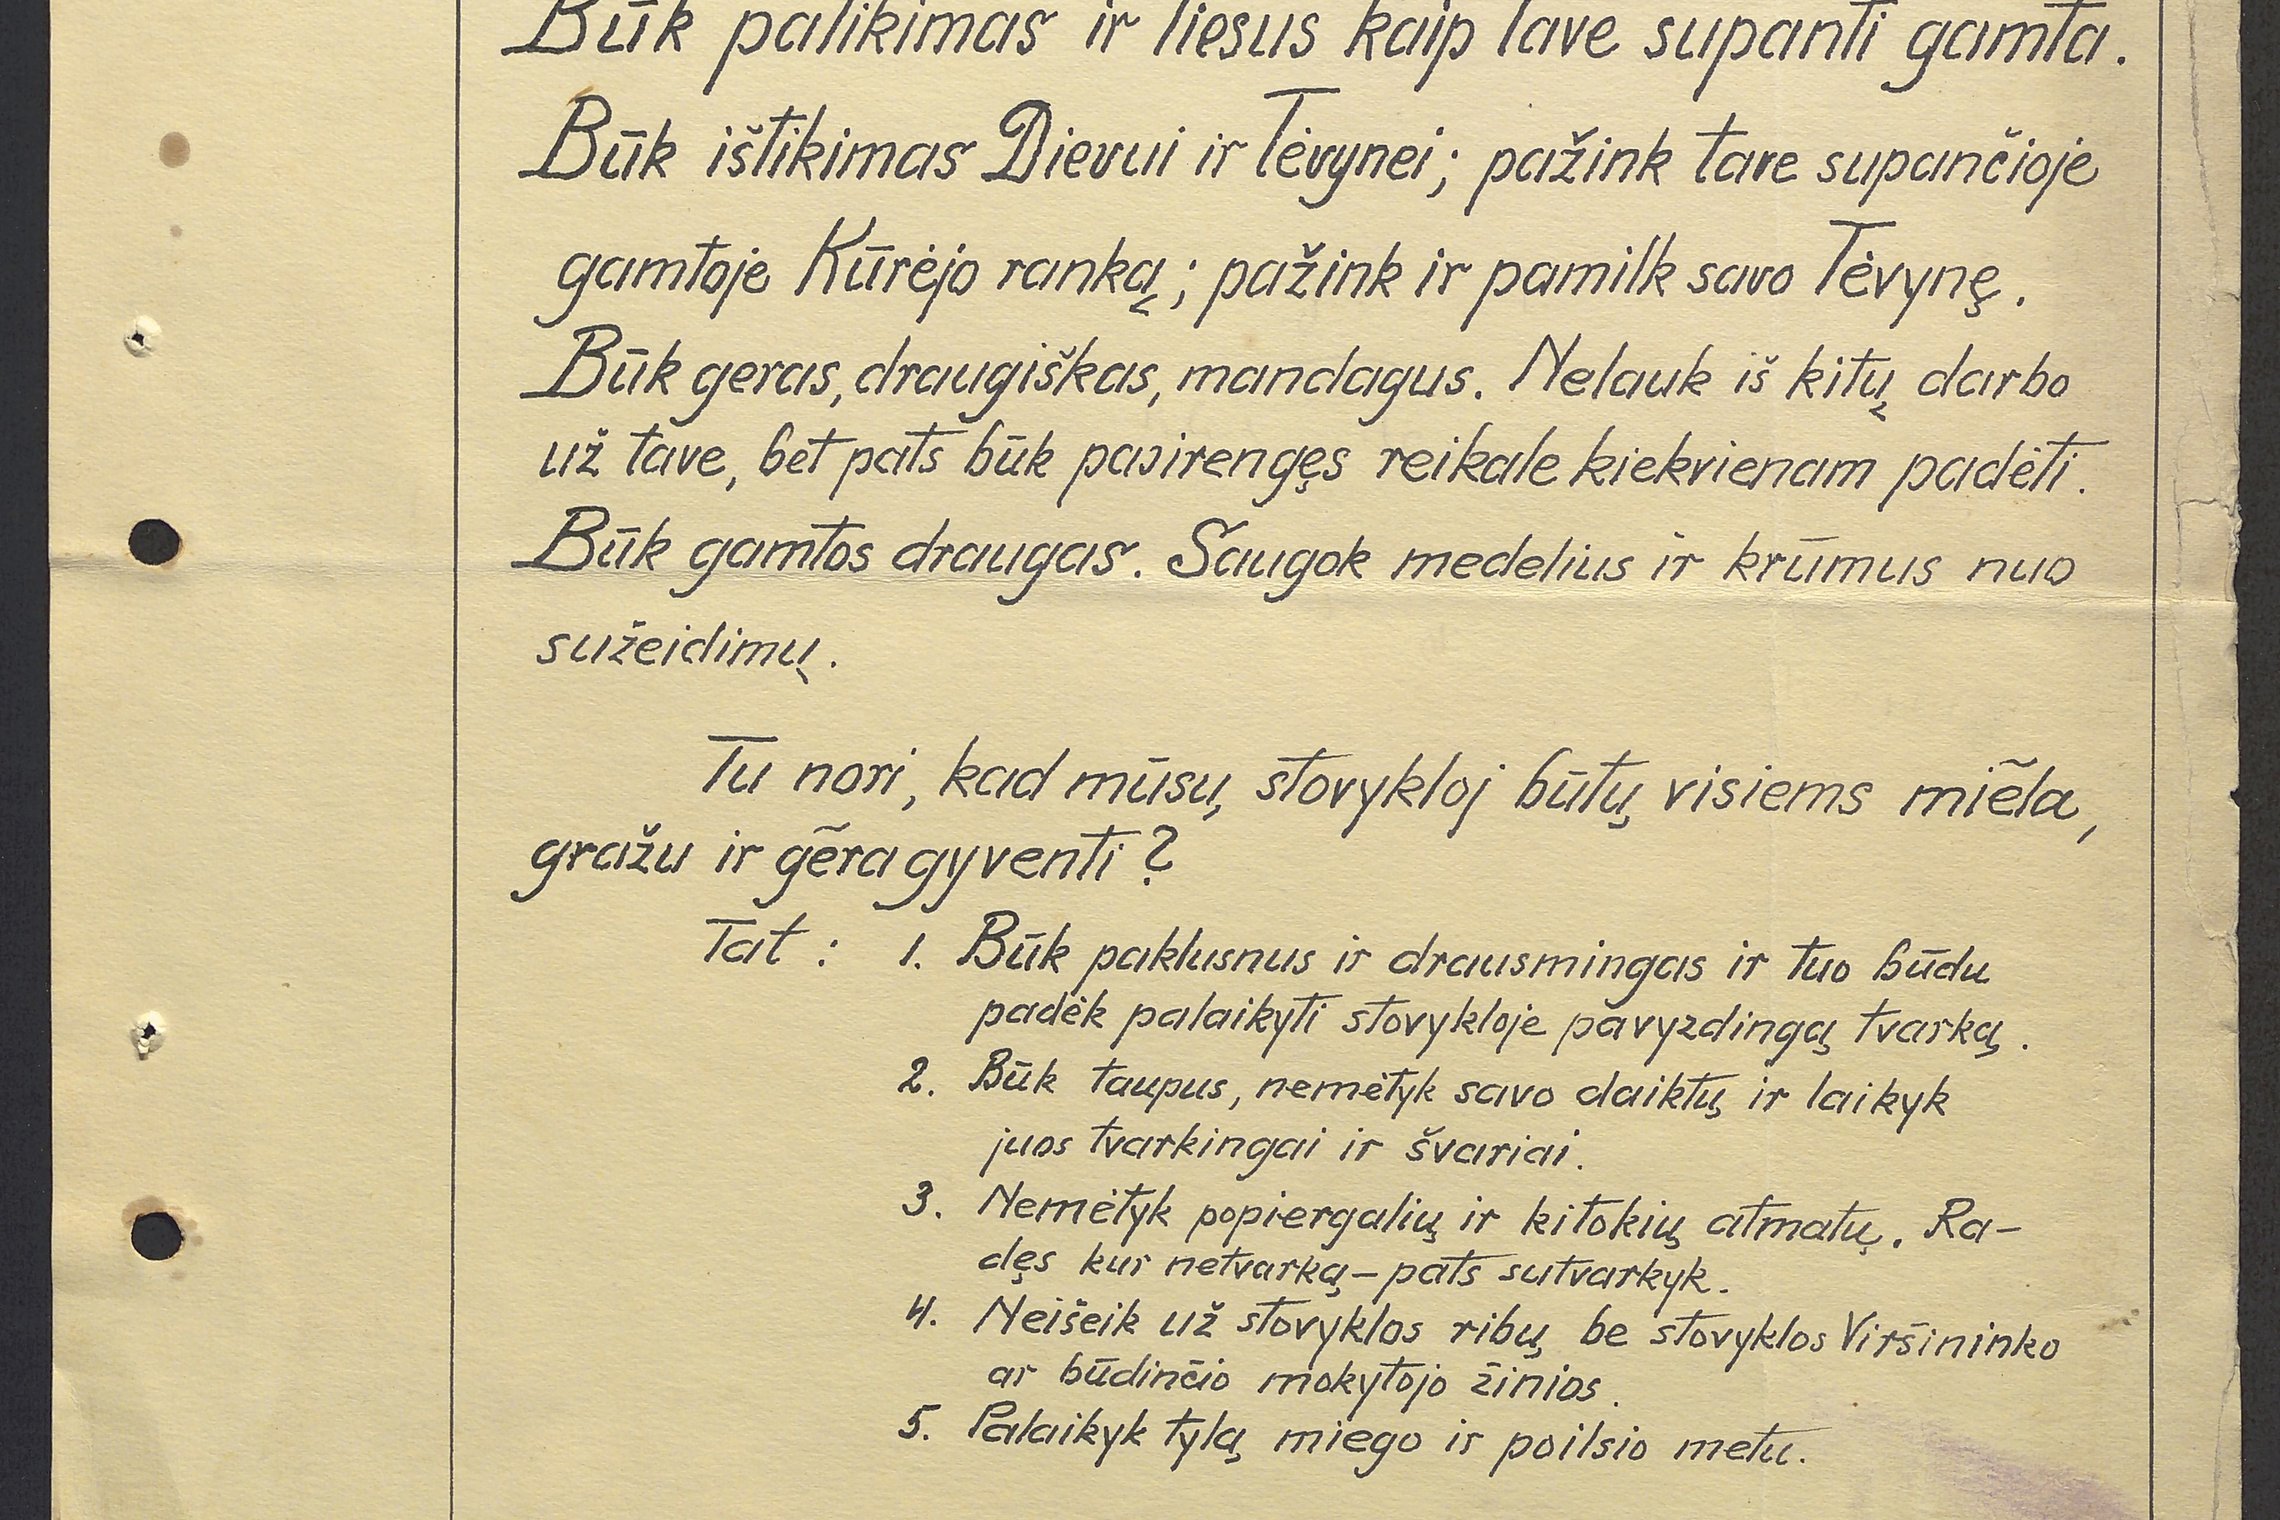 Būk palikimas ir tiesus kaip tave supanti gamta.
Būk ištikimas Dievui ir Tėvynei; pažink tave supančioje
gamtoje Kūrėjo ranką; pažink ir pamilk savo Tėvynę.
Būk geras, draugiškas, mandagus. Nelauk iš kitų darbo
už tave, bet pats būk pasirengęs reikale kiekvienam padėti.
Būk gamtos draugas. Saugok medelius ir krūmus nuo
sužeidimų.
Tu nori, kad mūsų stovykloj būtų visiems miẽla,
gražu ir gẽra gyventi?
Tat: 1. Būk paklusnus ir drausmingas ir tuo būdu
padėk palaikyti stovykloje pavyzdingą tvarką.
2. Būk taupus, nemėtyk savo daiktų ir laikyk
juos tvarkingai ir švariai.
3. Nemėtyk popiergalių ir kitokių atmatų. Ra-
dęs kur netvarką – pats sutvarkyk.
4. Neišeik už stovyklos ribų be stovyklos Viršininko
ar būdinčio mokytojo žinios.
5. Palaikyk tylą miego ir poilsio metu.